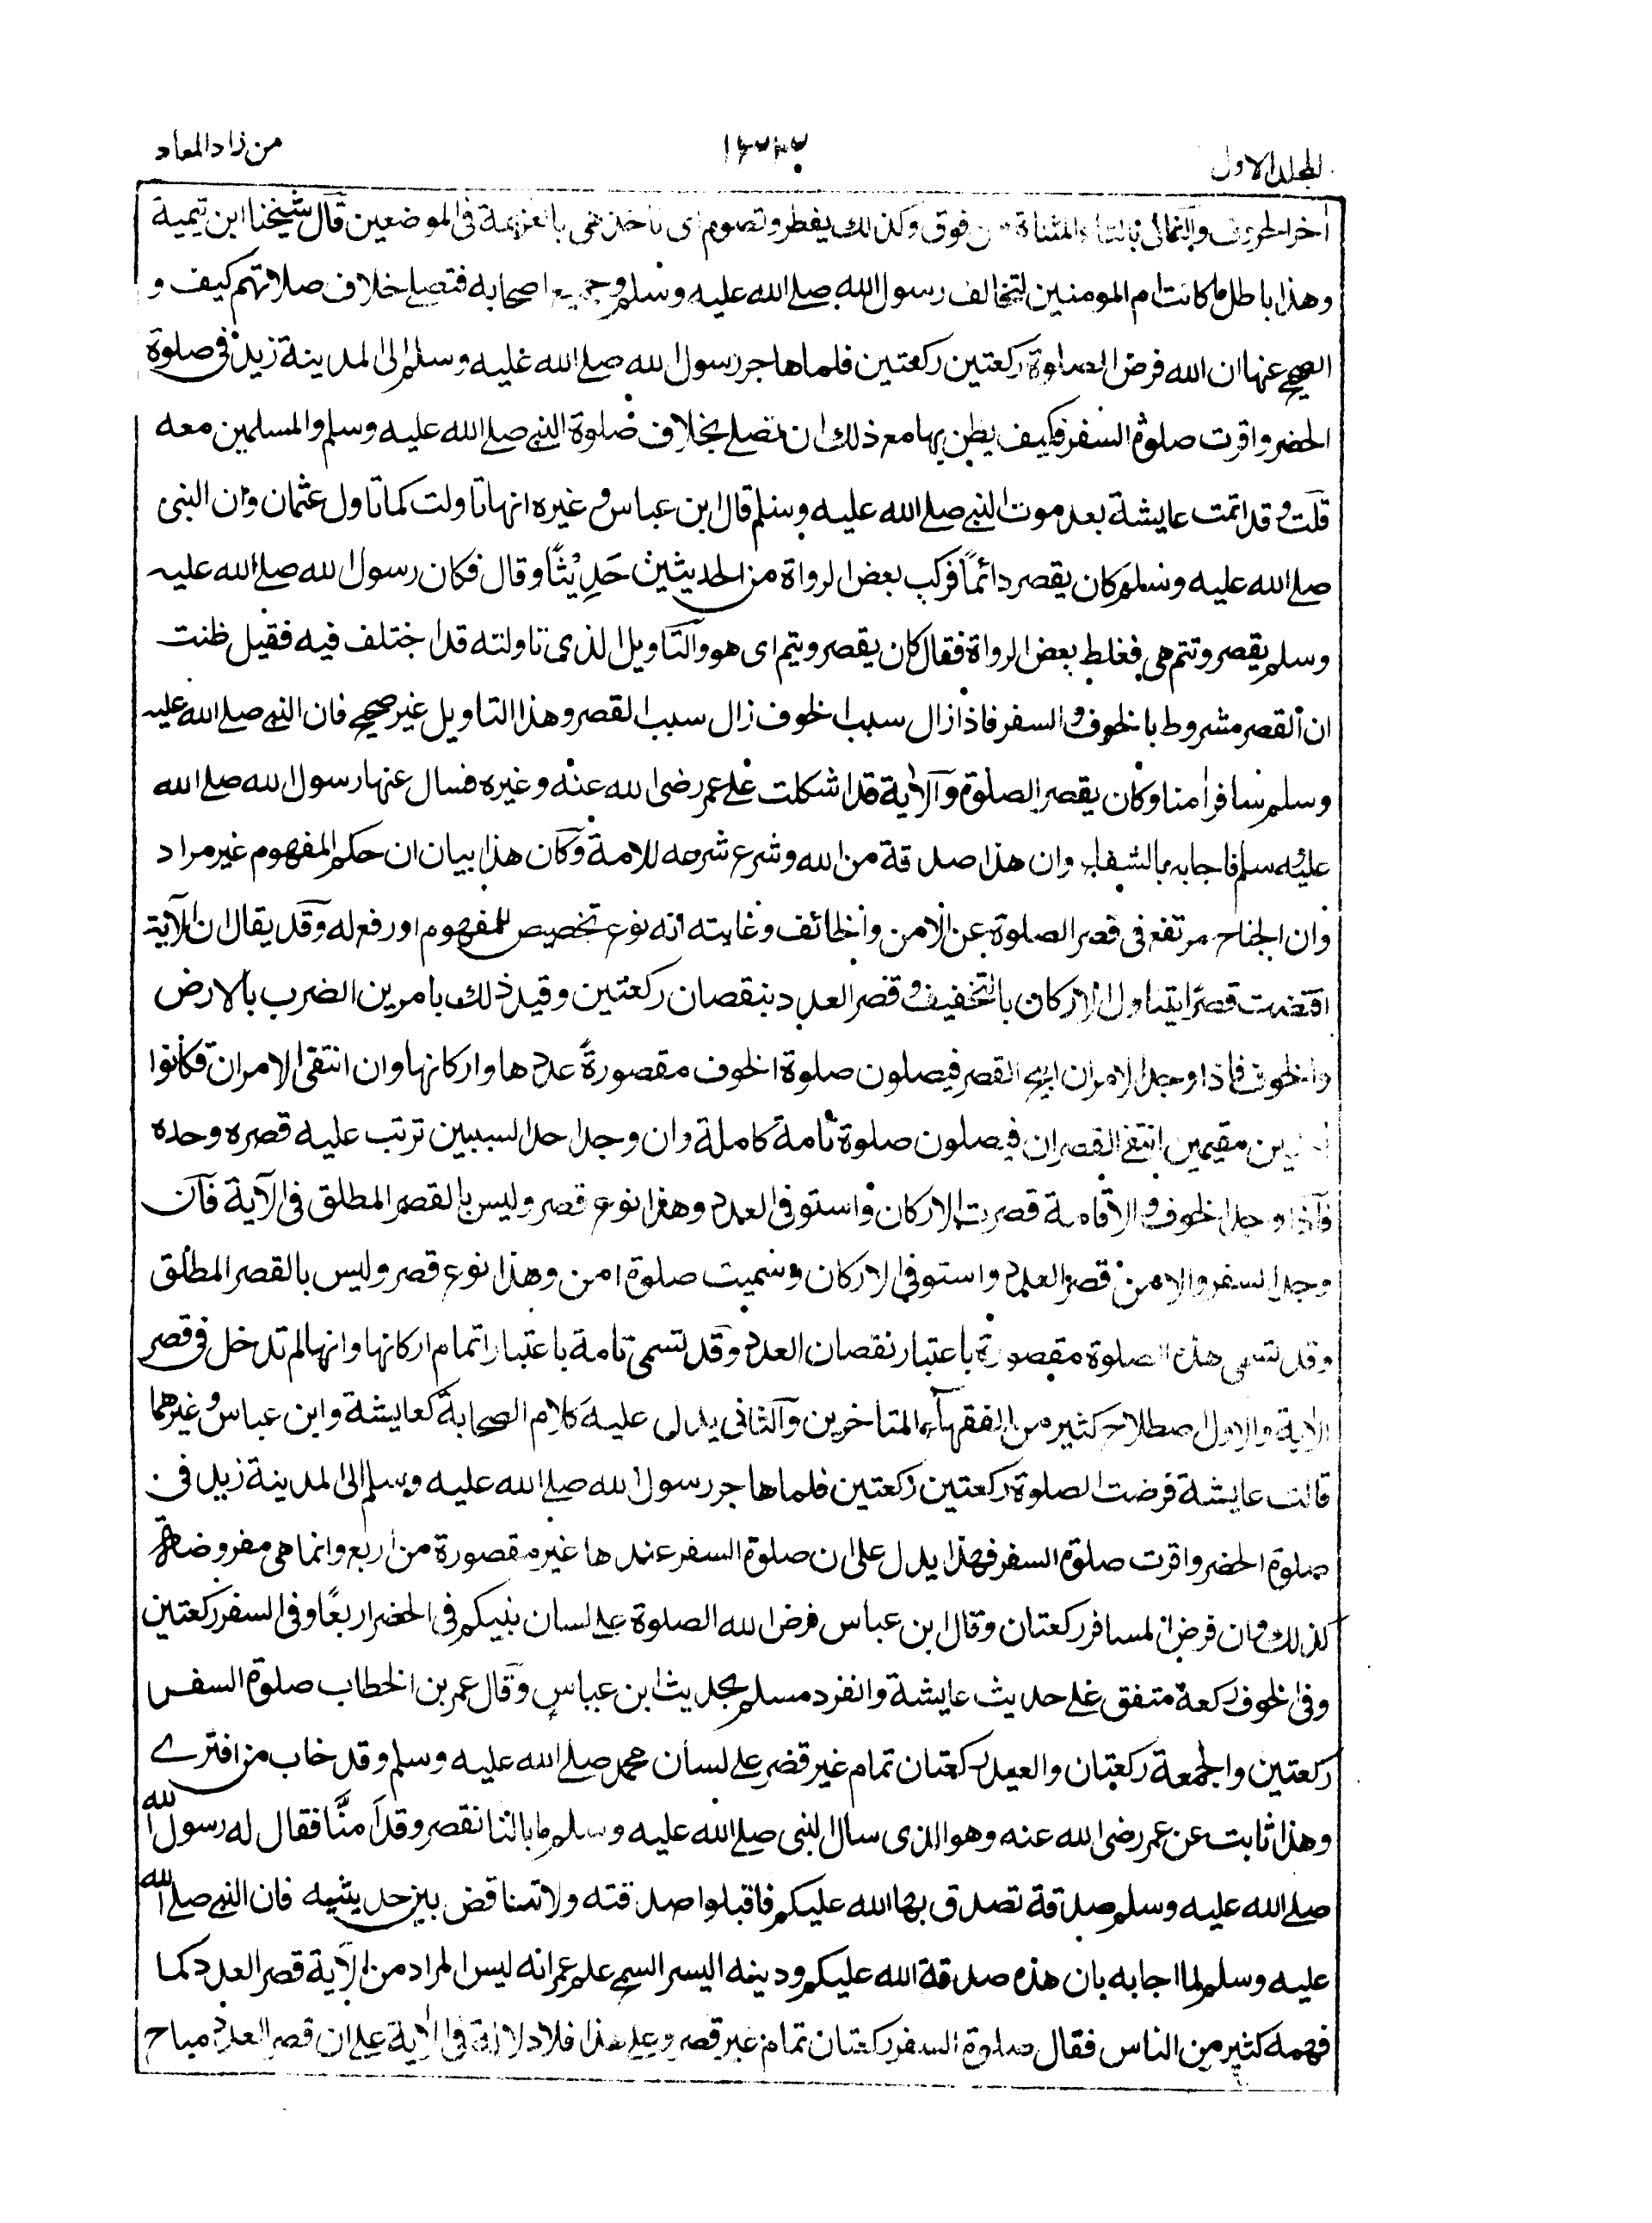 المجلد الاول
من زاد المعاد
آخر الحروف والثانى بالتاء المثناة من فوق وكذلك يفطر وتصوم اى تاخذ هى بالعزيمة فى الموضعين قال شيخنا ابن تيمية
وهذا باطل ما كانت ام المومنين لتخالف رسول الله صلى الله عليه وسلم وجميع اصحابه فتصلى خلاف صلاتهم كيف و
الصحيح عنها ان الله فرض الصلوة ركعتين ركعتين فلما هاجر رسول الله صلى الله عليه وسلم الى المدينة زيد فى صلوة
الحضر واقرت صلوة السفر فكيف يظن بها مع ذلك ان تصلى بخلاف صلوة النبى صلى الله عليه وسلم والمسلمين معه
قلت وقد اتمت عايشة بعد موت النبى صلى الله عليه وسلم قال ابن عباس وغيره انها تاولت كما تاول عثمان وان النبى
صلى الله عليه وسلم كان يقصر دائماً فركب بعض الرواة من الحديثين حَدِيْثًا وقال فكان رسول الله صلى الله عليه
وسلم يقصر وتتم هى فغلط بعض الرواة فقال كان يقصر ويتم اى هو والتاويل الذى تاولته قد اختلف فيه فقيل ظنت
ان القصر مشروط بالخوف والسفر فاذا زال سبب الخوف زال سبب القصر وهذا التاويل غير صحيح فان النبى صلى الله عليه
وسلم سافر امنا وكان يقصر الصلوة والآية قد اشكلت على عمر رضى الله عنه وغيره فسال عنها رسول الله صلى الله
عليه وسلم فاجابه بالشفاء وان هذا صدقة من الله وشرع شرعه للامة وكان هذا بيان ان حكم المفهوم غير مراد
وان الجناح مرتفع فى قصر الصلوة عن الامن والخائف وغايته انه نوع تخصيص للمفهوم او رفع له وقد يقال ان الآية
اقتضت قصرًا يتناول الاركان بالتخفيف وقصر العدد بنقصان ركعتين وقيد ذلك بامرين الضرب بالارض
والخوف فاذا وجد الامران ابيح القصر فيصلون صلوة الخوف مقصورةً عددها واركانها وان انتفى الامران فكانوا
امنين مقيمين انتفى القصران فيصلون صلوة تامة كاملة وان وجد احد السببين ترتب عليه قصره وحده
فاذا وجد الخوف والاقامة قصرت الاركان واستوفى العدد وهذا نوع قصر وليس بالقصر المطلق فى الآية فان
وجد السفر والامن قصر العدد واستوفى الاركان وسميت صلوة امن وهذا نوع قصر وليس بالقصر المطلق
وقد تسمى هذه الصلوة مقصورة باعتبار نقصان العدد وقد تسمى تامة باعتبار اتمام اركانها وانها لم تدخل فى قصر
الآية والاول اصطلاح كثير من الفقهاء المتاخرين والثانى يدل عليه كلام الصحابة كعايشة وابن عباس وغيرهما
قالت عايشة فرضت الصلوة ركعتين ركعتين فلما هاجر رسول الله صلى الله عليه وسلم الى المدينة زيد فى
صلوة الحضر واقرت صلوة السفر فهذا يدل على ان صلوة السفر عندها غير مقصورة من اربع وانما هى مفروضة
كذلك وان فرض المسافر ركعتان وقال ابن عباس فرض الله الصلوة على لسان نبيكم فى الحضر اربعًا وفى السفر ركعتين
وفى الخوف ركعة متفق على حديث عايشة وانفرد مسلم بحديث ابن عباس وقال عمر بن الخطاب صلوة السفر
ركعتين والجمعة ركعتان والعيد ركعتان تمام غير قصر على لسان محمد صلى الله عليه وسلم وقد خاب من افترى
وهذا ثابت عن عمر رضى الله عنه وهو الذى سال النبى صلى الله عليه وسلم ما بالنا نقصر وقد اَمنَّا فقال له رسول الله
صلى الله عليه وسلم صدقة تصدق بها الله عليكم فاقبلوا صدقته ولا تناقض بين حديثيه فان النبى صلى الله
عليه وسلم لما اجابه بان هذه صدقة الله عليكم ودينه اليسر السمح علم عمر انه ليس المراد من الآية قصر العدد كما
فهمه كثير من الناس فقال صلوة السفر ركعتان تمام غير قصر وعلى هذا فلا دلالة فى الآية على ان قصر العدد مباح